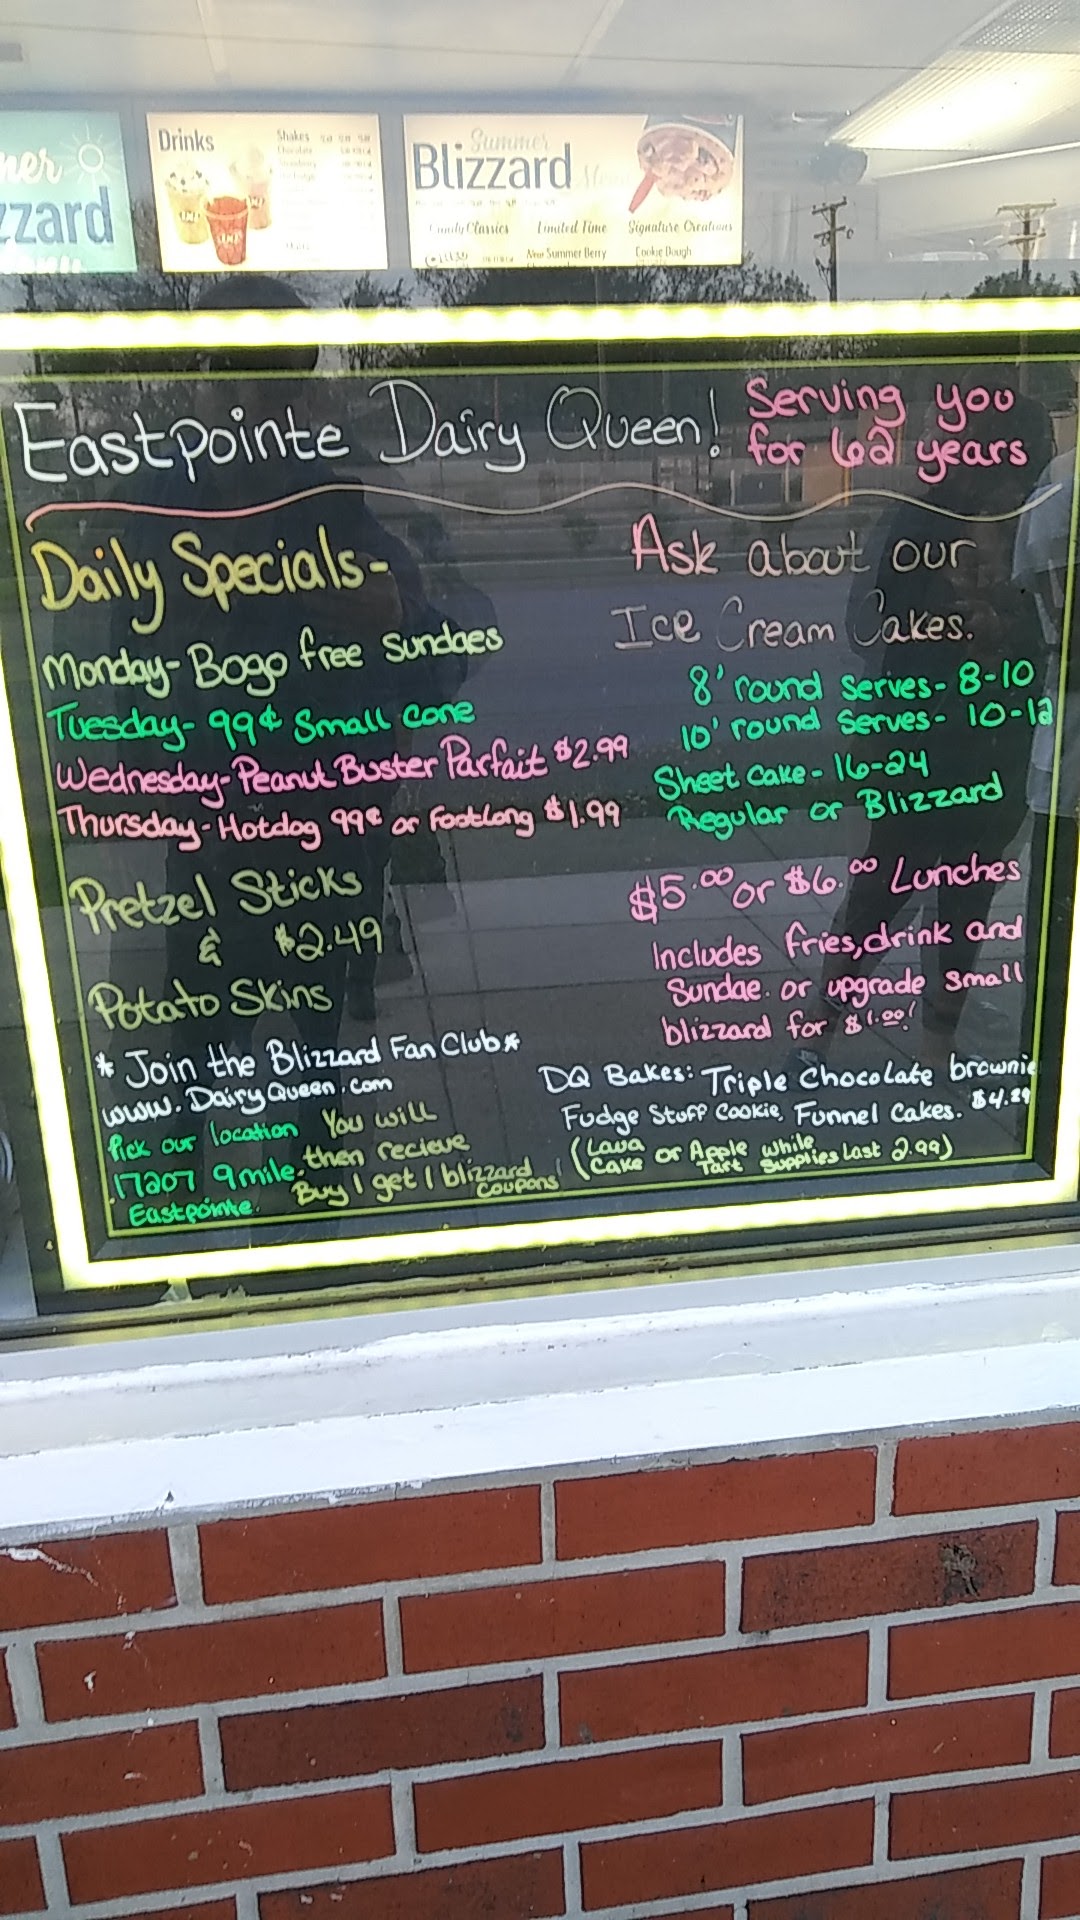 ner
zzard
Drinks
Shakes
Summer
Blizzard
Menu
Candy Classics
Limited Time
Signature Creations
New Summer Berry
Cookie Dough
Eastpointe Dairy Queen!
Serving you
for 62 years
Daily Specials-
Monday- Bogo free sundaes
Tuesday- 99¢ small cone
Wednesday- Peanut Buster Parfait $2.99
Thursday- Hotdog 99¢ or Footlong $1.99
Pretzel Sticks
& $2.49
Potato Skins
* Join the Blizzard Fan Club *
www.DairyQueen.com
Pick our location
17207 9mile.
Eastpointe.
You will
then recieve
Buy 1 get 1 blizzard
coupons!
Ask about our
Ice Cream Cakes.
8' round serves- 8-10
10' round serves- 10-12
Sheet cake- 16-24
Regular or Blizzard
$5.00 or $6.00 Lunches
Includes fries, drink and
Sundae. or upgrade small
blizzard for $1.00!
DQ Bakes: Triple Chocolate brownie
Fudge Stuff Cookie, Funnel Cakes. $4.29
(Lava Cake or Apple Tart while supplies last 2.99)